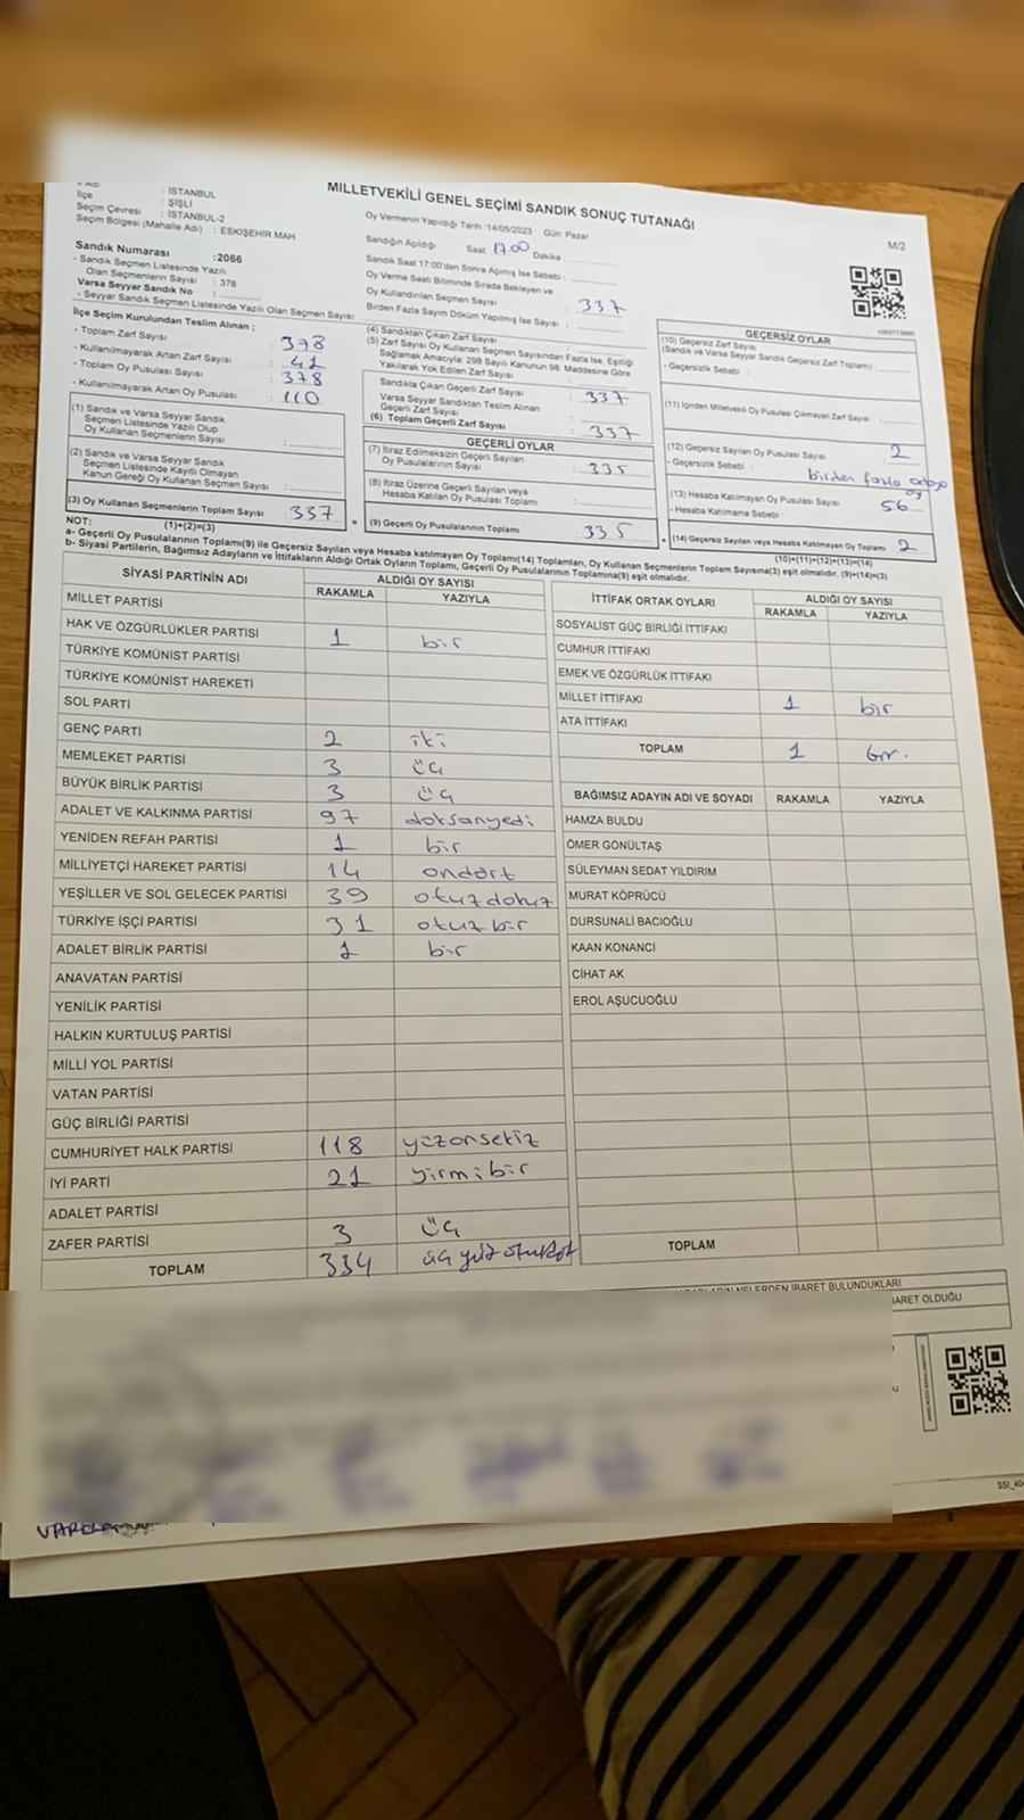 MİLLETVEKİLİ GENEL SEÇİMİ SANDIK SONUÇ TUTANAĞI
M/2
: İSTANBUL
İlçe : ŞİŞLİ
Seçim Çevresi : İSTANBUL-2
Seçim Bölgesi (Mahalle Adı) : ESKİŞEHİR MAH
Oy Vermenin Yapıldığı Tarih :14/05/2023 Gün: Pazar
Sandığın Açıldığı Saat 17:00 Dakika
Sandık Saat 17:00'dan Sonra Açılmış İse Sebebi :
Oy Verme Saati Bitiminde Sırada Bekleyen ve
Oy Kullandırılan Seçmen Sayısı : 337
Birden Fazla Sayım Döküm Yapılmış İse Sayısı :
Sandık Numarası :2066
- Sandık Seçmen Listesinde Yazılı
Olan Seçmenlerin Sayısı : 378
Varsa Seyyar Sandık No :
- Seyyar Sandık Seçmen Listesinde Yazılı Olan Seçmen Sayısı
İlçe Seçim Kurulundan Teslim Alınan ;
- Toplam Zarf Sayısı : 378
- Kullanılmayarak Artan Zarf Sayısı : 41
- Toplam Oy Pusulası Sayısı : 378
- Kullanılmayarak Artan Oy Pusulası : 110
(1) Sandık ve Varsa Seyyar Sandık
Seçmen Listesinde Yazılı Olup
Oy Kullanan Seçmenlerin Sayısı :
(2) Sandık ve Varsa Seyyar Sandık
Seçmen Listesinde Kayıtlı Olmayan
Kanun Gereği Oy Kullanan Seçmen Sayısı :
(3) Oy Kullanan Seçmenlerin Toplam Sayısı : 337
(1)+(2)=(3)
(4) Sandıktan Çıkan Zarf Sayısı
(5) Zarf Sayısı Oy Kullanan Seçmen Sayısından Fazla İse, Eşitliği
Sağlamak Amacıyla; 298 Sayılı Kanunun 98. Maddesine Göre
Yakılarak Yok Edilen Zarf Sayısı :
Sandıkta Çıkan Geçerli Zarf Sayısı : 337
Varsa Seyyar Sandıktan Teslim Alınan
Geçerli Zarf Sayısı
(6) Toplam Geçerli Zarf Sayısı : 337
GEÇERLİ OYLAR
(7) İtiraz Edilmeksizin Geçerli Sayılan
Oy Pusulalarının Sayısı : 335
(8) İtiraz Üzerine Geçerli Sayılan veya
Hesaba Katılan Oy Pusulası Toplamı :
(9) Geçerli Oy Pusulalarının Toplamı : 335
GEÇERSİZ OYLAR
(10) Geçersiz Zarf Sayısı
(Sandık ve Varsa Seyyar Sandık Geçersiz Zarf Toplamı) :
- Geçersizlik Sebebi :
(11) İçinden Milletvekili Oy Pusulası Çıkmayan Zarf Sayısı :
(12) Geçersiz Sayılan Oy Pusulası Sayısı : 2
- Geçersizlik Sebebi : birden fazla
oy
(13) Hesaba Katılmayan Oy Pusulası Sayısı : 56
- Hesaba Katılmama Sebebi :
(14) Geçersiz Sayılan veya Hesaba Katılmayan Oy Toplamı : 2
(10)+(11)+(12)+(13)=(14)
NOT:
a- Geçerli Oy Pusulalarının Toplamı(9) ile Geçersiz Sayılan veya Hesaba katılmayan Oy Toplamı(14) Toplamları, Oy Kullanan Seçmenlerin Toplam Sayısına(3) eşit olmalıdır. (9)+(14)=(3)
b- Siyasi Partilerin, Bağımsız Adayların ve İttifakların Aldığı Ortak Oyların Toplamı, Geçerli Oy Pusulalarının Toplamına(9) eşit olmalıdır.
SİYASİ PARTİNİN ADI ALDIĞI OY SAYISI
RAKAMLA YAZIYLA
MİLLET PARTİSİ
HAK VE ÖZGÜRLÜKLER PARTİSİ 1 bir
TÜRKİYE KOMÜNİST PARTİSİ
TÜRKİYE KOMÜNİST HAREKETİ
SOL PARTİ
GENÇ PARTİ 2 iki
MEMLEKET PARTİSİ 3 üç
BÜYÜK BİRLİK PARTİSİ 3 üç
ADALET VE KALKINMA PARTİSİ 97 doksanyedi
YENİDEN REFAH PARTİSİ 1 bir
MİLLİYETÇİ HAREKET PARTİSİ 14 ondört
YEŞİLLER VE SOL GELECEK PARTİSİ 39 otuzdokuz
TÜRKİYE İŞÇİ PARTİSİ 31 otuz bir
ADALET BİRLİK PARTİSİ 1 bir
ANAVATAN PARTİSİ
YENİLİK PARTİSİ
HALKIN KURTULUŞ PARTİSİ
MİLLİ YOL PARTİSİ
VATAN PARTİSİ
GÜÇ BİRLİĞİ PARTİSİ
CUMHURİYET HALK PARTİSİ 118 yüzonsekiz
İYİ PARTİ 21 yirmibir
ADALET PARTİSİ
ZAFER PARTİSİ 3 üç
TOPLAM 334 üç yüz
İTTİFAK ORTAK OYLARI ALDIĞI OY SAYISI
RAKAMLA YAZIYLA
SOSYALİST GÜÇ BİRLİĞİ İTTİFAKI
CUMHUR İTTİFAKI
EMEK VE ÖZGÜRLÜK İTTİFAKI
MİLLET İTTİFAKI 1 bir
ATA İTTİFAKI
TOPLAM 1 bir.
BAĞIMSIZ ADAYIN ADI VE SOYADI RAKAMLA YAZIYLA
HAMZA BULDU
ÖMER GÖNÜLTAŞ
SÜLEYMAN SEDAT YILDIRIM
MURAT KÖPRÜCÜ
DURSUNALİ BACIOĞLU
KAAN KONANCİ
CİHAT AK
EROL AŞUCUOĞLU
TOPLAM
NELERDEN İBARET BULUNDUKLARI
İBARET OLDUĞU